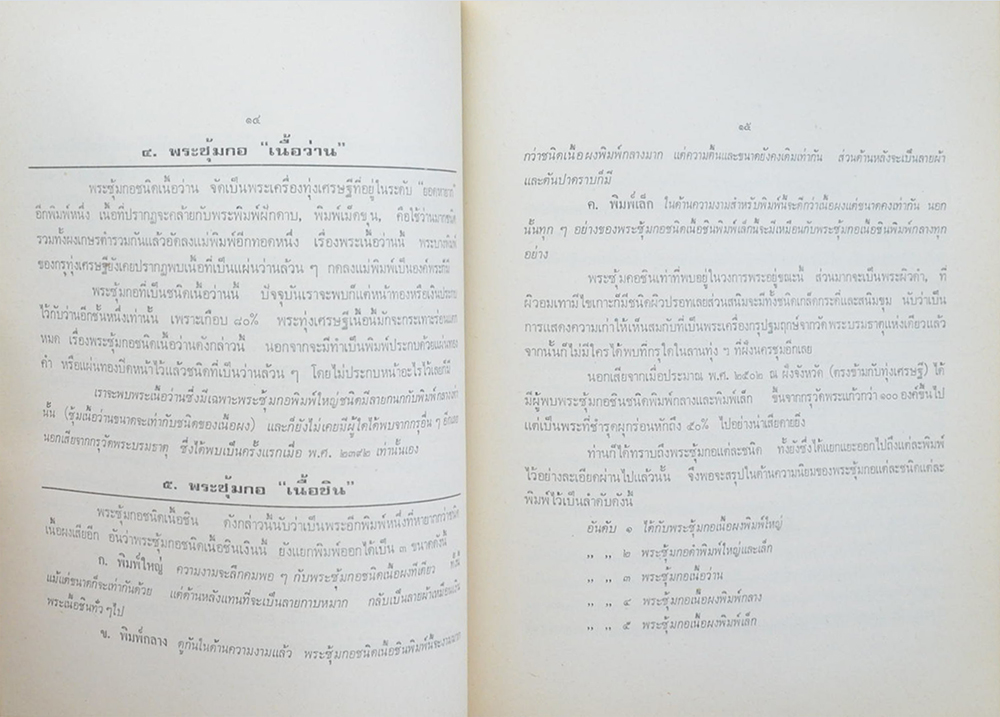 ๑๔
๔. พระซุ้มกอ "เนื้อว่าน"
พระซุ้มกอชนิดเนื้อว่าน จัดเป็นพระเครื่องทุ่งเศรษฐีที่อยู่ในระดับ "ยอดหายาก"
อีกพิมพ์หนึ่ง เนื้อที่ปรากฏจะคล้ายกับพระพิมพ์ฝักดาบ, พิมพ์เม็ดขนุน, คือใช้ว่านมากชนิด
รวมทั้งผงเกษรดำรวมกันแล้วอัดลงแม่พิมพ์อีกทอดหนึ่ง เรื่องพระเนื้อว่านนี้ พระบางพิมพ์
ของกรุทุ่งเศรษฐียังเคยปรากฏพบเนื้อที่เป็นแผ่นว่านล้วน ๆ กดลงแม่พิมพ์เป็นองค์พระก็มี
พระซุ้มกอที่เป็นชนิดเนื้อว่านนี้ ปัจจุบันเราจะพบก็แต่หน้าทองหรือเงินประกบ
ไว้กับว่านอีกชั้นหนึ่งเท่านั้น เพราะเกือบ ๘๐% พระทุ่งเศรษฐีเนื้อนี้มักจะกระเทาะร่อนแตก
หมด เรื่องพระซุ้มกอชนิดเนื้อว่านดังกล่าวนี้ นอกจากจะมีทำเป็นพิมพ์ประกบด้วยแผ่นทอง
คำ หรือแผ่นทองปิดหน้าไว้แล้วชนิดที่เป็นว่านล้วน ๆ โดยไม่ประกบหน้าอะไรไว้เลยก็มี
เราจะพบพระเนื้อว่านซึ่งมีเฉพาะพระซุ้มกอพิมพ์ใหญ่ชนิดมีลายกนกกับพิมพ์กลางเท่า
นั้น (ซุ้มเนื้อว่านขนาดจะเท่ากับชนิดของเนื้อผง) และก็ยังไม่เคยมีผู้ใดได้พบจากกรุอื่น ๆ อีกเลย
นอกเสียจากกรุวัดพระบรมธาตุ ซึ่งได้พบเป็นครั้งแรกเมื่อ พ.ศ. ๒๓๙๒ เท่านั้นเอง
๕. พระซุ้มกอ "เนื้อชิน"
พระซุ้มกอชนิดเนื้อชิน ดังกล่าวนี้นับว่าเป็นพระอีกพิมพ์หนึ่งที่หายากกว่าชนิด
เนื้อผงเสียอีก อันว่าพระซุ้มกอชนิดเนื้อชินเงินนี้ ยังแยกพิมพ์ออกได้เป็น ๓ ขนาดดังนี้
ก. พิมพ์ใหญ่ ความงามจะลึกคมพอ ๆ กับพระซุ้มกอชนิดเนื้อผงทีเดียว ทั้งนี้
แม้แต่ขนาดก็จะเท่ากันด้วย แต่ด้านหลังแทนที่จะเป็นลายกาบหมาก กลับเป็นลายผ้าเหมือน
พระเนื้อชินทั่ว ๆ ไป
ข. พิมพ์กลาง ดูกันในด้านความงามแล้ว พระซุ้มกอชนิดเนื้อชินพิมพ์นี้จะงามมาก
๑๕
กว่าชนิดเนื้อผงพิมพ์กลางมาก แต่ความตื้นและขนาดยังคงเดิมเท่ากัน ส่วนด้านหลังจะเป็นลายผ้า
และตันปาดราบก็มี
ค. พิมพ์เล็ก ในด้านความงามสำหรับพิมพ์นี้จะดีกว่าเนื้อผงแต่ขนาดคงเท่ากัน นอก
นั้นทุก ๆ อย่างของพระซุ้มกอชนิดเนื้อชินพิมพ์เล็กนั้นจะมีเหมือนกับพระซุ้มกอเนื้อชินพิมพ์กลางทุก
อย่าง
พระซุ้มกอชินเท่าที่พบอยู่ในวงการพระอยู่ขณะนี้ ส่วนมากจะเป็นพระผิวดำ, ที่
ผิวอมเทามีไขเกาะก็มีชนิดผิวปรอทเลยส่วนสนิมจะมีทั้งชนิดเกล็ดกระดี่และสนิมขุม นับว่าเป็น
การแสดงความเก่าให้เห็นสมกับที่เป็นพระเครื่องกรุปฐมฤกษ์จากวัดพระบรมธาตุแห่งเดียวแล้ว
จากนั้นก็ไม่มีใครได้พบที่กรุใดในลานทุ่ง ๆ ที่ฝั่งนครชุมอีกเลย
นอกเสียจากเมื่อประมาณ พ.ศ. ๒๕๐๒ ณ ฝั่งจังหวัด (ตรงข้ามกับทุ่งเศรษฐี) ได้
มีผู้พบพระซุ้มกอชินชนิดพิมพ์กลางและพิมพ์เล็ก ขึ้นจากกรุวัดพระแก้วกว่า ๑๐๐ องค์ขึ้นไป
แต่เป็นพระที่ชำรุดผุกร่อนหักถึง ๕๐% ไปอย่างน่าเสียดายยิ่ง
ท่านก็ได้ทราบถึงพระซุ้มกอแต่ละชนิด ทั้งยังซึ่งได้แยกแยะออกไปถึงแต่ละพิมพ์
ไว้อย่างละเอียดผ่านไปแล้วนั้น จึงพอจะสรุปในด้านความนิยมของพระซุ้มกอแต่ละชนิดแต่ละ
พิมพ์ไว้เป็นลำดับดังนี้
อันดับ ๑ ได้กับพระซุ้มกอเนื้อผงพิมพ์ใหญ่
,, ,, ๒ พระซุ้มกอดำพิมพ์ใหญ่และเล็ก
,, ,, ๓ พระซุ้มกอเนื้อว่าน
,, ,, ๔ พระซุ้มกอเนื้อผงพิมพ์กลาง
,, ,, ๕ พระซุ้มกอเนื้อผงพิมพ์เล็ก